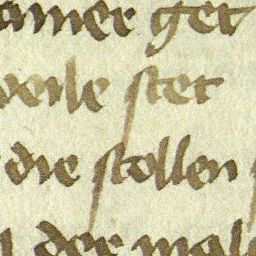 amer get
weile stet
die stollen
der mal